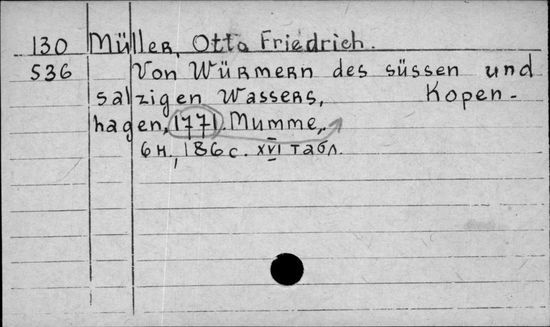 130 Müller, Otto Friedrich.
536 Von Würmern des süssen und
salzigen Wassers, Kopen-
hagen, 1771. Mumme,
6 н., 186 с. XVI табл.